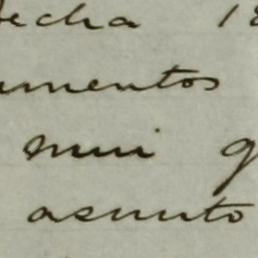 fecha 18
umentos
mui g
asunto